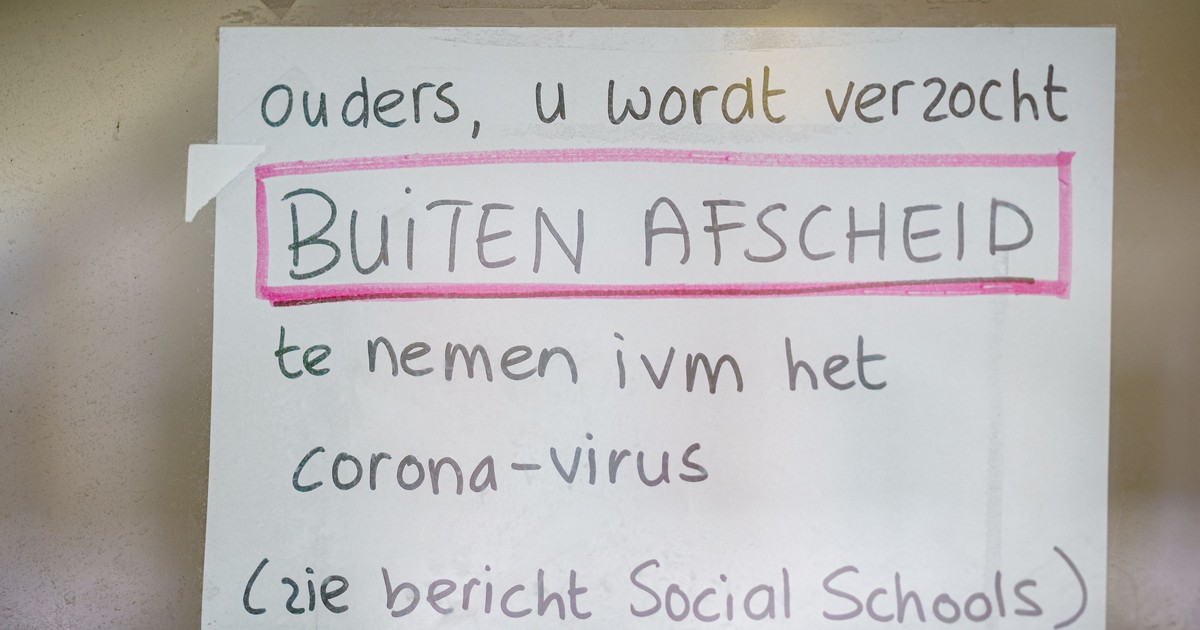 ouders, u wordt verzocht
BUiTEN AFSCHEID
te nemen ivm het
corona-virus
(zie bericht Social Schools)